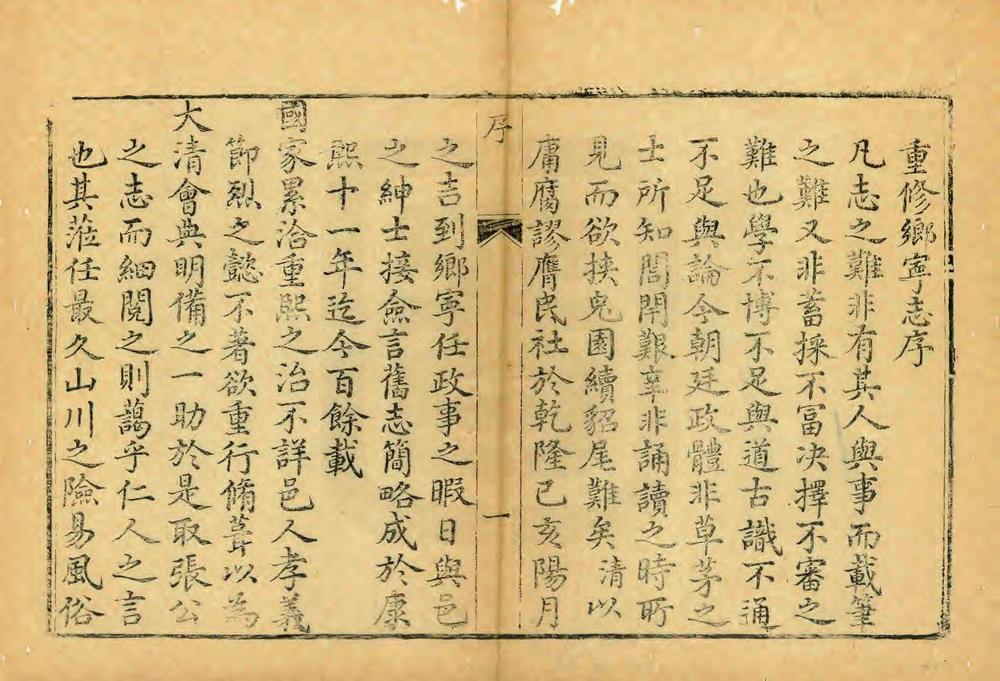 重修鄉寧志序
凡志之難非有其人與事而載筆
之難又非蓄採不富決擇不審之
難也學不博不足與道古識不通
不足與論今朝廷政體非草茅之
士所知閭閈艱辛非誦讀之時所
見而欲挾兎園續貂尾難矣清以
庸腐謬膺民社於乾隆己亥陽月
序
一
之吉到鄉寧任政事之暇日與邑
之紳士接僉言舊志簡略成於康
熙十一年迄今百餘載
國家累洽重熙之治不詳邑人孝義
節烈之懿不著欲重行脩葺以為
大清會典明備之一助於是取張公
之志而細閱之則藹乎仁人之言
也其蒞任最久山川之險易風俗